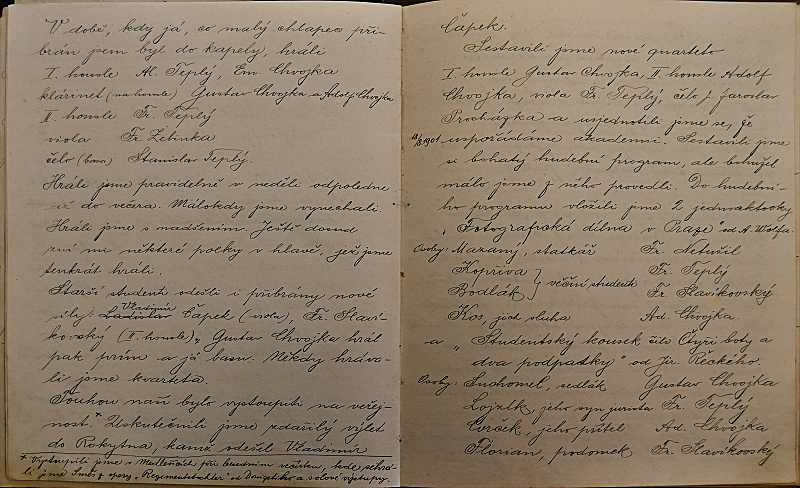 V době, kdy já, co malý chlapec při-
brán jsem byl do kapely, hráli
I. housle Al. Teplý, Em. Chvojka
klárinet (na housle) Gustav Chvojka a Adolf Chvojka
II. housle Fr. Teplý
viola Fr. Zelinka
čelo (basa) Stanislav Teplý.
Hráli jsme pravidelně v neděli odpoledne
až do večera. Málokdy jsme vynechali.
Hráli jsme s nadšením. Ještě dosud
zní mi některé polky v hlavě, jež jsme
tenkrát hráli.
Starší studenti odešli i přibrány nové
síly: Ladislav Vladimír Čapek (viola), Fr. Slaví-
kovský (II. housle), Gustav Chvojka hrál
pak prim a já basu. Někdy hráva-
li jsme kvarteta.
Touhou naší bylo vystoupiti na veřej-
nost.* Uskutečnili jsme zdařilý výlet
do Rokytna, kamž odešel Vladimír
* Vystoupili jsme v Medlešicích při besedním večírku, kde sehrá-
li jsme Směs z opery „Regimentstochter" od Donizettiho a sólové výstupy.
Čapek.
Sestavili jsme nové quarteto
I. housle Gustav Chvojka, II. housle Adolf
Chvojka, viola Fr. Teplý, čelo J. Jaroslav
Procházka a usjednotili jsme se, že
1901 uspořádáme akademii. Sestavili jsme
si bohatý hudební program, ale bohužel
málo jsme z něho provedli. Do hudební-
ho programu vložili jsme 2 jednoaktovky
„Fotografická dílna v Praze" od A. Wolfa.
Osoby: Mazaný, statkář Fr. Netušil
Kopřiva Fr. Teplý
Bodlák } věční studenti Fr. Slavíkovský
Kos, jich sluha Ad. Chvojka.
a „Studentský kousek čili Čtyři boty a
dva podpatky" od Jr. Řeckého.
Osoby: Suchomel, sedlák Gustav Chvojka
Lojzík, jeho syn jurista Fr. Teplý
Cvrček, jeho přítel Ad. Chvojka
Florian, podomek Fr. Slavíkovský